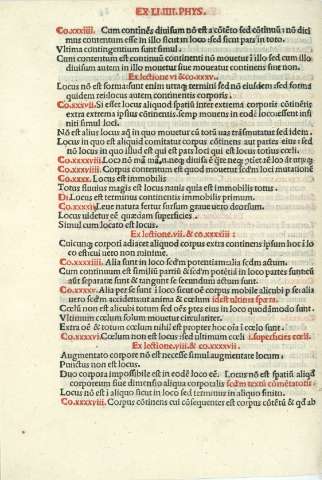 EX LI. IIII. PHYS.
Co.xxxiiii. Cum continẽs diuisum nõ est a cõtẽto sed cõtinuũ: nõ dici
mus contentum esse in illo sicut in loco sed sicut pars in toto.
Ultima contingentium sunt simul.
Cum contentum est continuum continenti nõ mouetur i illo sed cum illo
diuisum autem in illo mouetur siue moueatur continens siue non.
Ex lectione vi &co.xxxv.
Locus nõ est forma: sunt enim utraq; termini sed nõ eiusdem sed forma
quidem rei: locus autem continentis corporis.
Co.xxxvii. Si esset locus aliquod spatiũ inter extrema corporis cõtinẽtis
extra extrema ipsius cõtinentis, semp mouens in eodẽ loco: essent ifi
niti simul loci.
Nõ est alius locus aq in quo mouetur cũ totũ uas trãsmutatur sed idem.
Locus in quo est aliquid comitatur corpus cõtinens aut partes eius: sed
nõ locus in quo illud est qui est pars loci qui est locus totius cœli.
Co.xxxviii.
Co.xxxviiii. Corpus contentum est quod mouetur scd̃m loci mutationẽ
Co.xxxx. Locus est immobilis
Totus fluuius magis est locus nauis quia est immobilis totus.
Di. Locus est terminus continentis immobilis primum.
Co.xxxxi. Leue natura fertur sursum graue uero deorsum.
Locus uidetur eẽ quædam superficies.
Simul cum locato est locus.
Ex lectione.vii. & co.xxxxiii :
Cuicunq; corpori adiacet aliquod corpus extra continens ipsum hoc i lo
co est: cui uero non minime.
Co.xxxxiiii. Alia sunt in loco scd̃m potentiam: alia scd̃m actum.
Cum continuum est similiũ partiũ & scd̃m potẽtiã in loco partes sunt: cũ
aũt separatæ sunt & tangunt se secundum actum sunt.
Co.xxxxv. Alia per se sunt i loco sicut oẽ corpus mobile: alicubi p se: alia
uero scd̃m accidens: ut anima & cœlum idest ultima spæra.
Cœlũ non est alicubi totum sed oẽs ptes eius in loco quodãmodo sunt.
Ultimum cœlum solum mouetur circulariter.
Extra oẽ & totum cœlum nihil est: propter hoc oĩa i cœlo sunt.
Co.xxxxvi. Cœlum non est locus: sed ultimum cœli i. superficies cœli.
Ex lectione.viii & co.xxxxvii.
Augmentato corpore nõ est necesse simul augmentare locum
Punctus non est locus.
Duo corpora impossibile est in eodẽ loco eẽ. Locus nõ est spatiũ aliqd
corporeum siue dimensio aliqua corporalis scd̃m textũ cõmẽtatoris.
Locus nõ est i aliquo sicut in loco sed terminus in aliquo finito.
Co.xxxxviii. Corpus cõtinens cui cõsequenter est corpus cõtẽtũ & qd ab